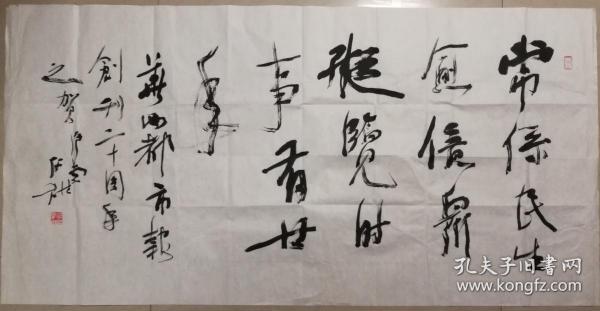 常係民生
億
縱覽時
事有廿
年
華西都市報
創刊二十周年
之賀
孔夫子旧书网
www.kongfz.com